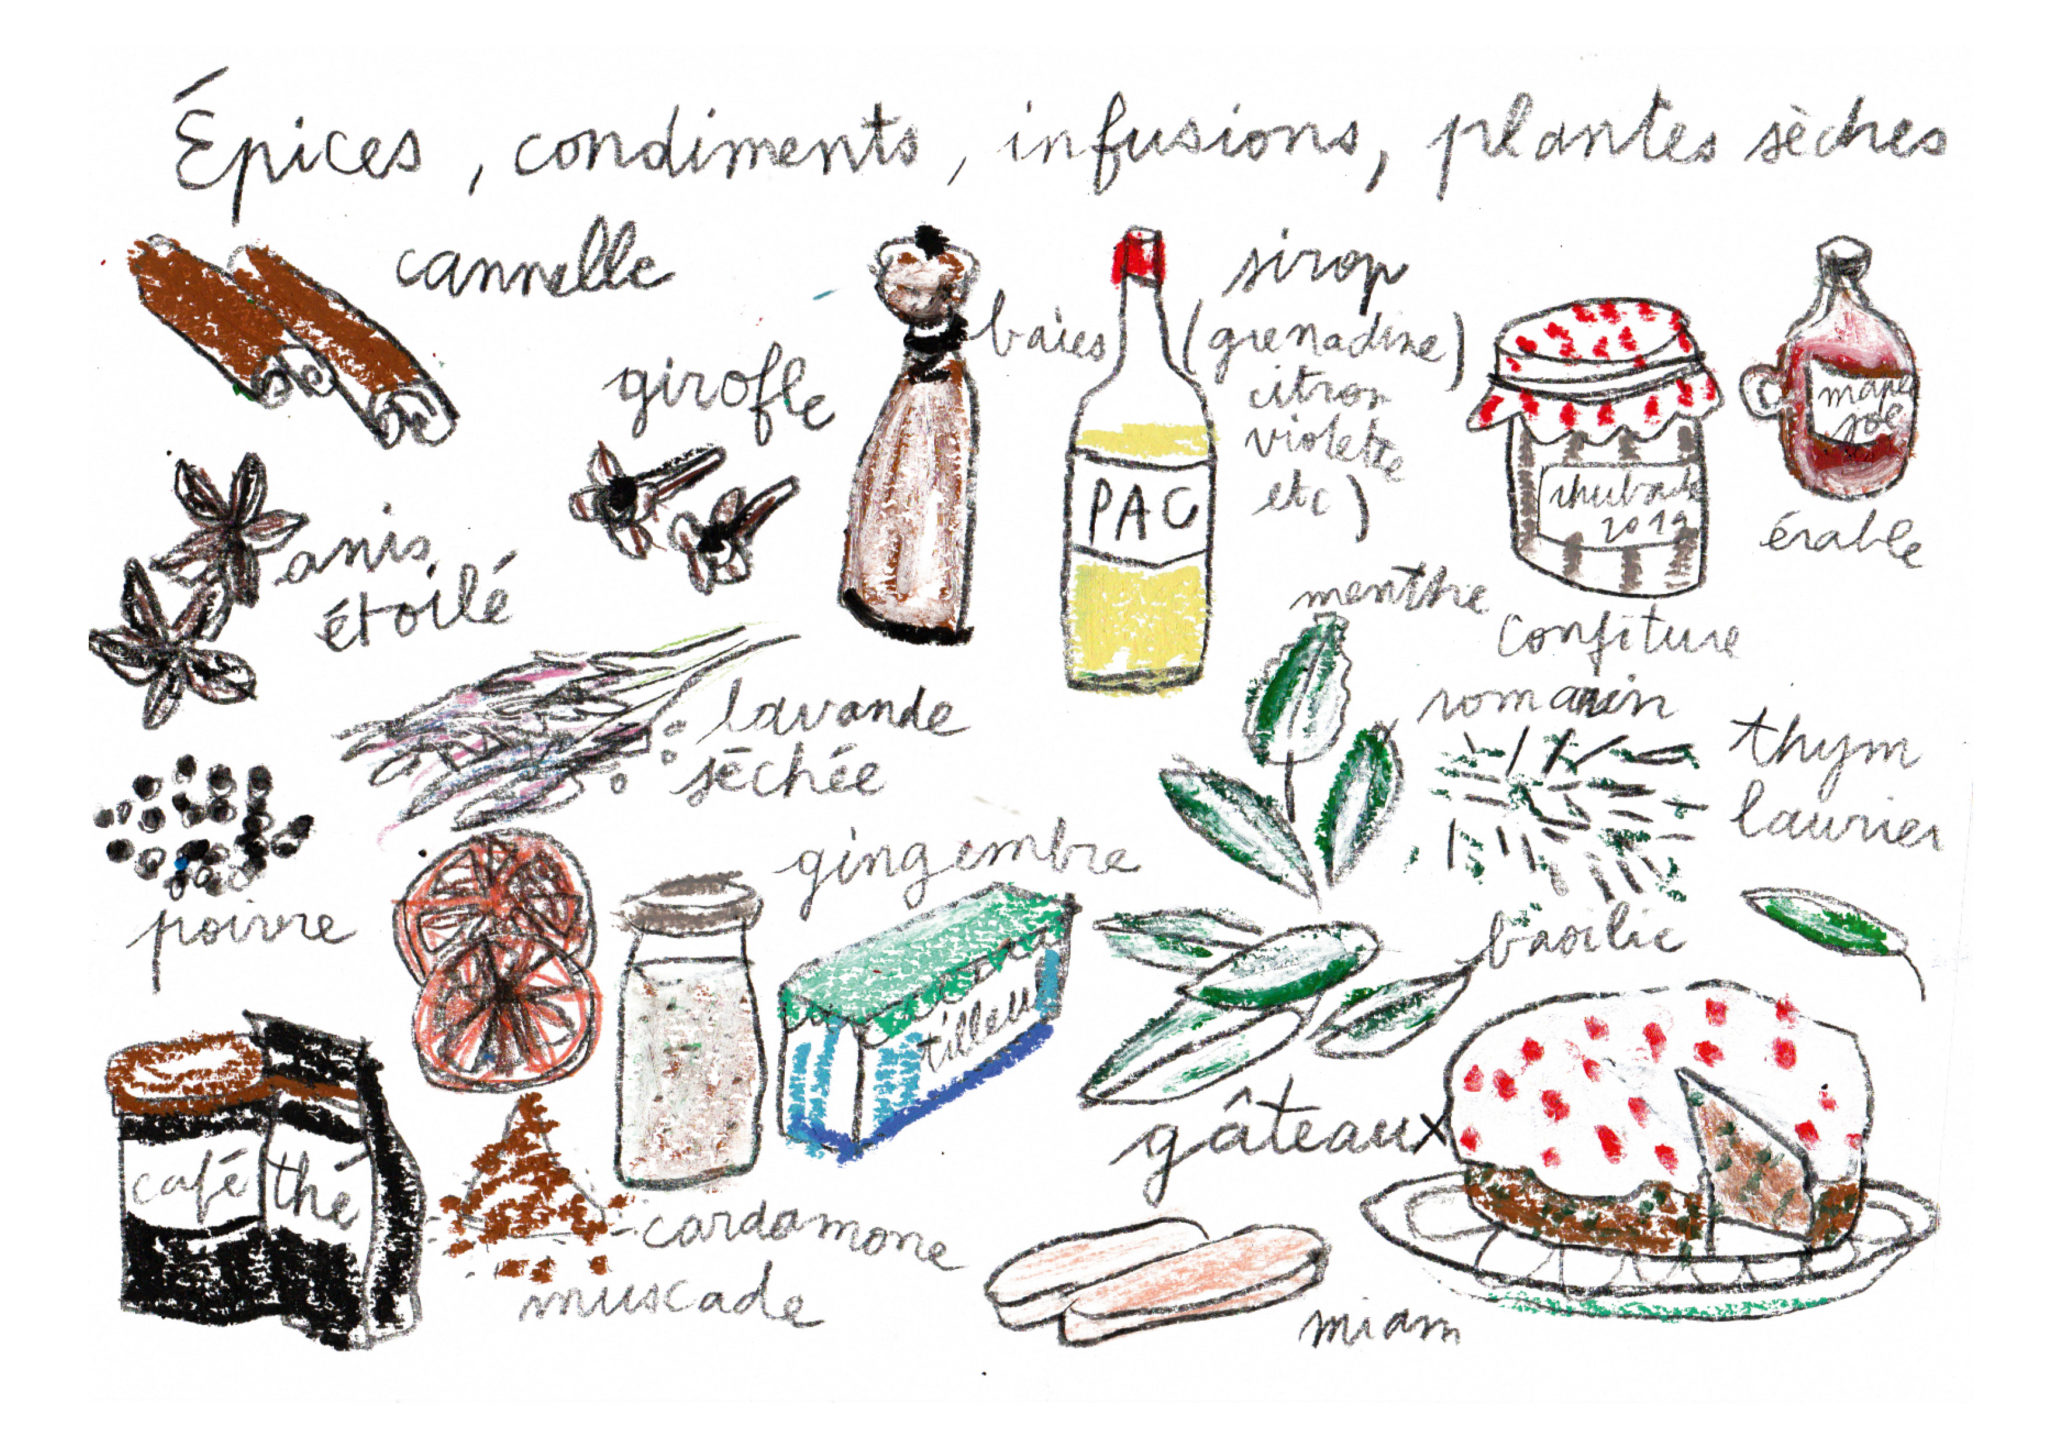 Épices, condiments, infusions, plantes sèches
cannelle
girofle
baies
sirop
(grenadine)
citron
violette
etc)
PAC
rhubarbe
2019
maple
joe
érable
anis
étoilé
menthe
confiture
romarin
thym
laurier
lavande
séchée
gingembre
poivre
basilic
tilleul
café
thé
gâteaux
cardamone
muscade
miam